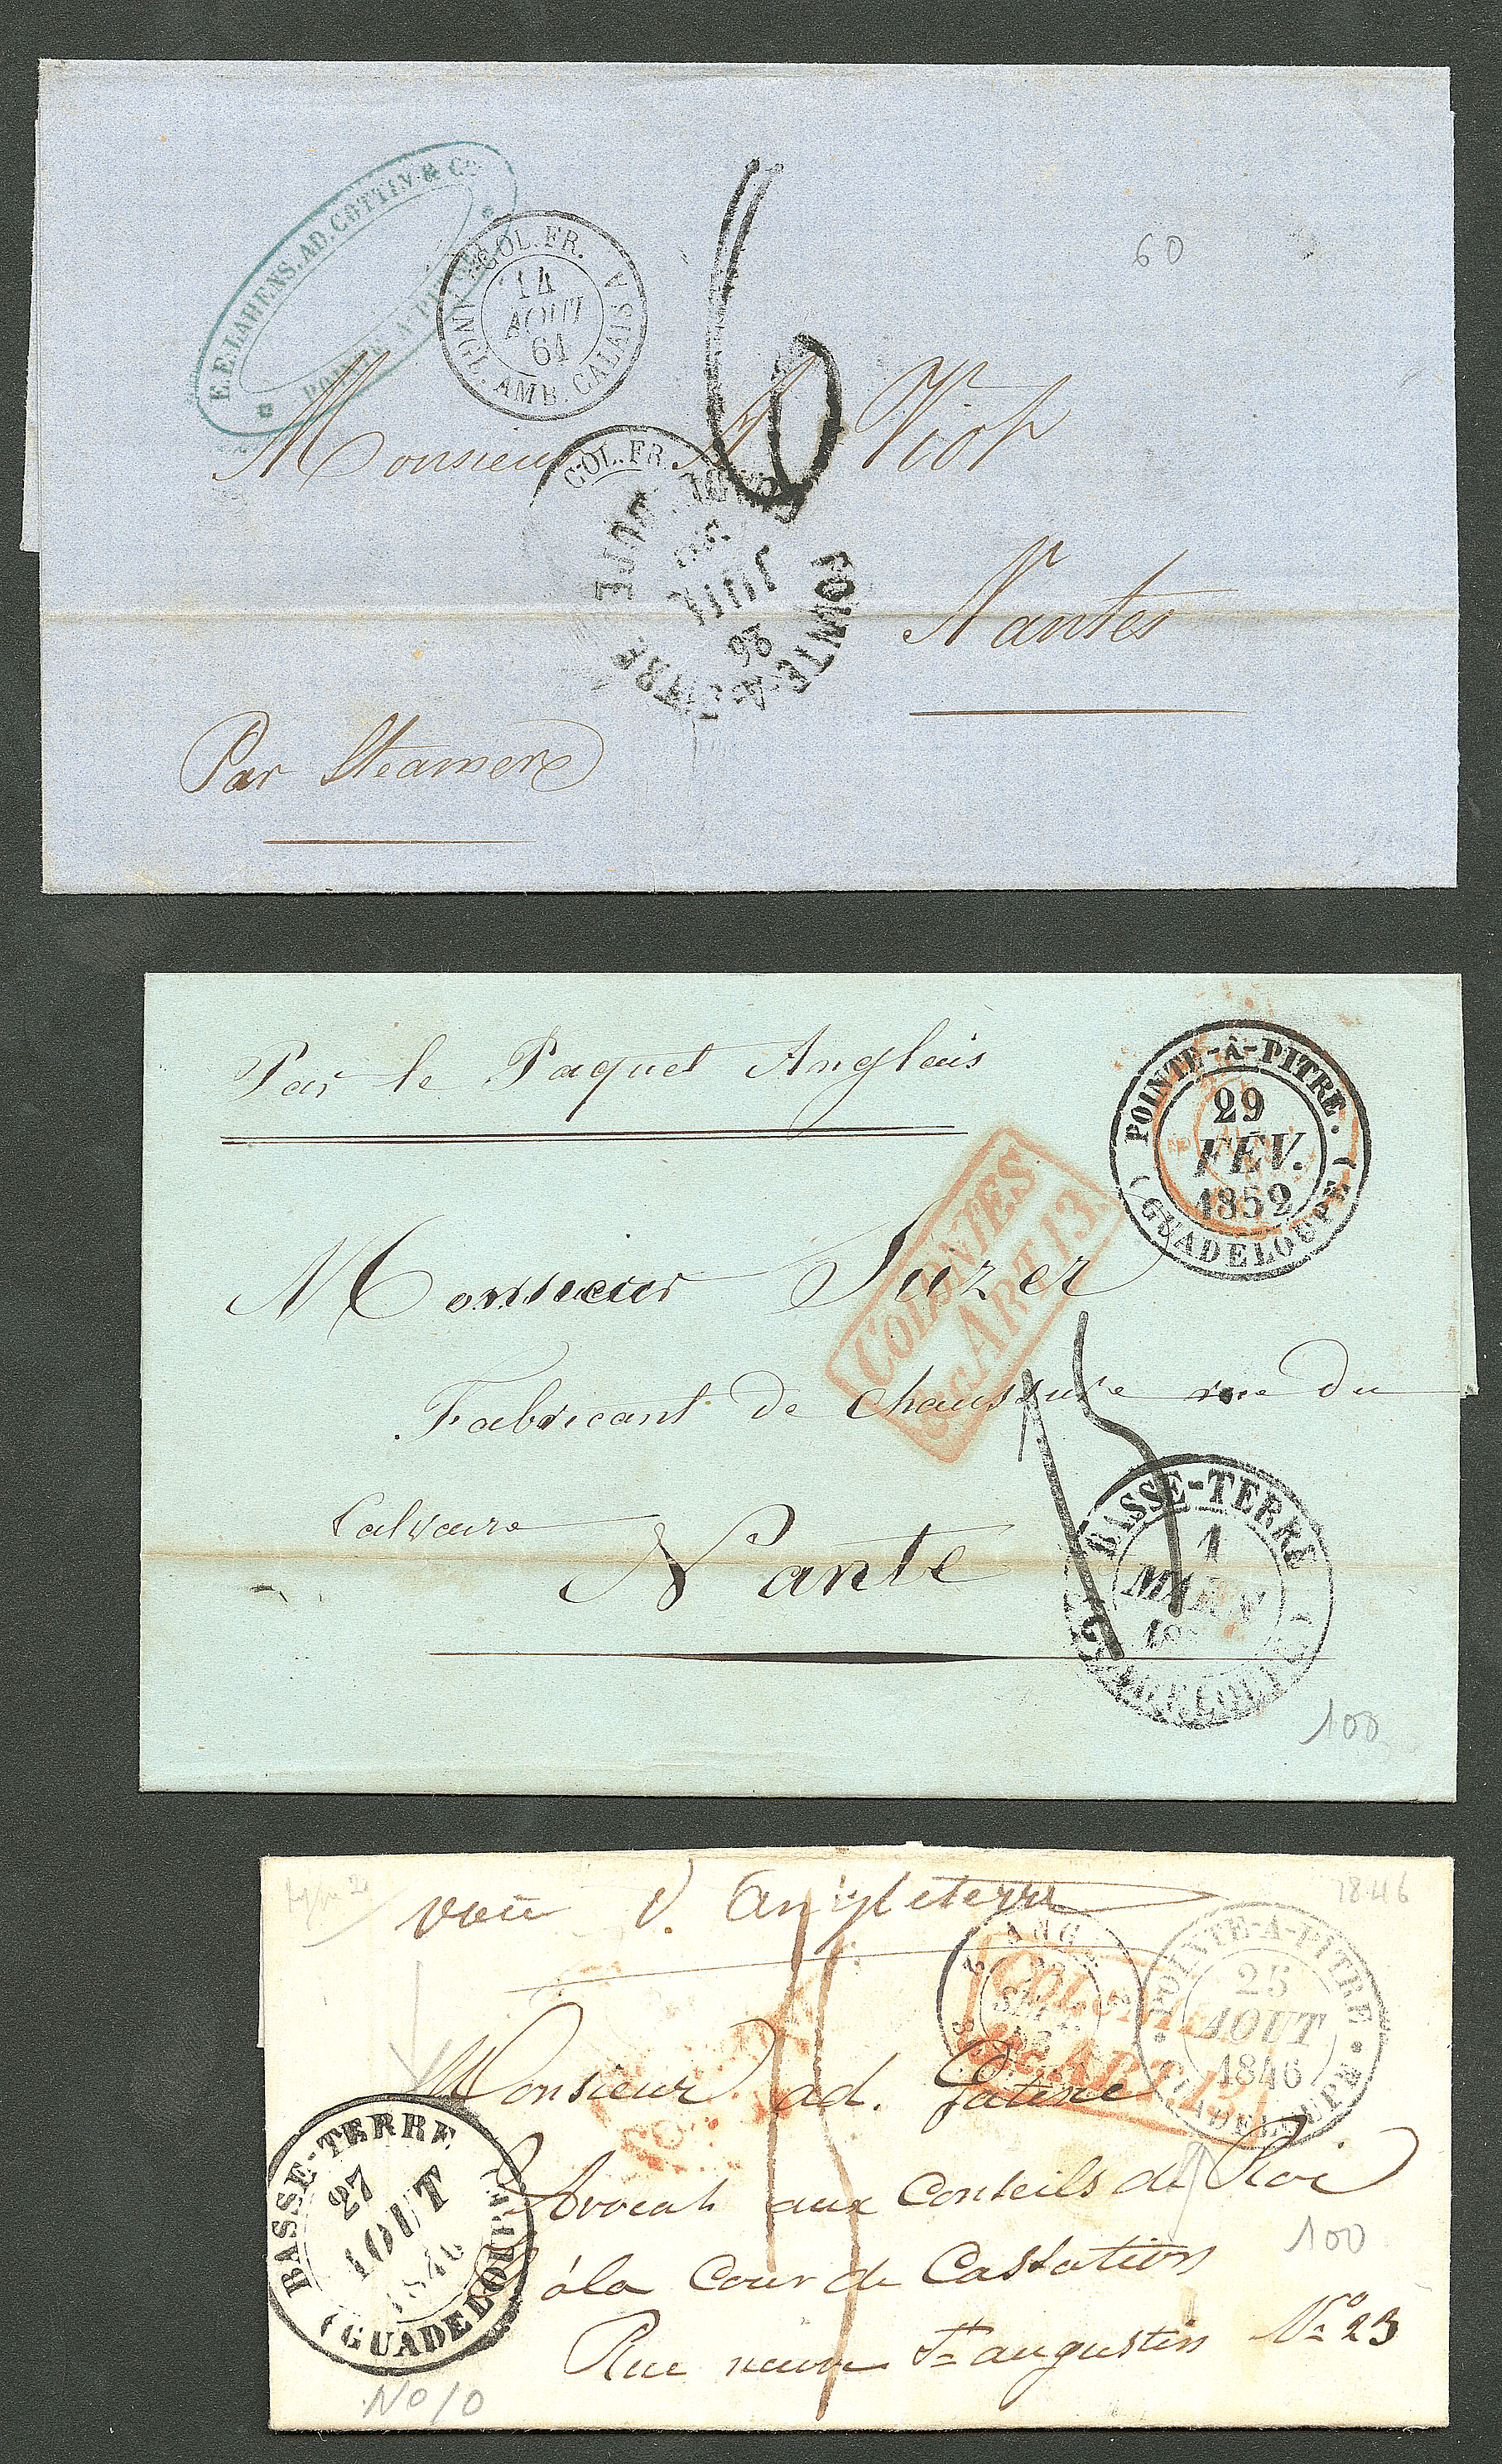 E.E. LAHENS. AD. COTTIN & Co.
POINTE A PITRE
COL. FR.
14
AOUT
61
ANGL. AMB. CALAIS A
6
60
Monsieur A Viot
COL. FR.
POINTE-A-PITRE
JUIL
Nantes
Par Steamers
Par le Paquet Anglais
POINTE-À-PITRE.
29
FÉV.
1852
(GUADELOUPE)
COLONIES
&c. ART. 13.
Monsieur Suzer
Fabricant de Chaussure rue du
Calvaire
Nante
15
BASSE-TERRE
1
MARS
(GUADELOUPE)
100
type 2
1846
voie d'Angleterre
15
ANGL.
SEPT.
COLONIES
&c. ART. 13
POINTE-A-PITRE
25
AOUT
1846
GUADELOUPE
Monsieur ad. Gatine
Avocat aux Conseils du Roi
à la Cour de Cassation
Rue neuve St augustin No 23
BASSE-TERRE
27
AOUT
1846
(GUADELOUPE)
100
No 10